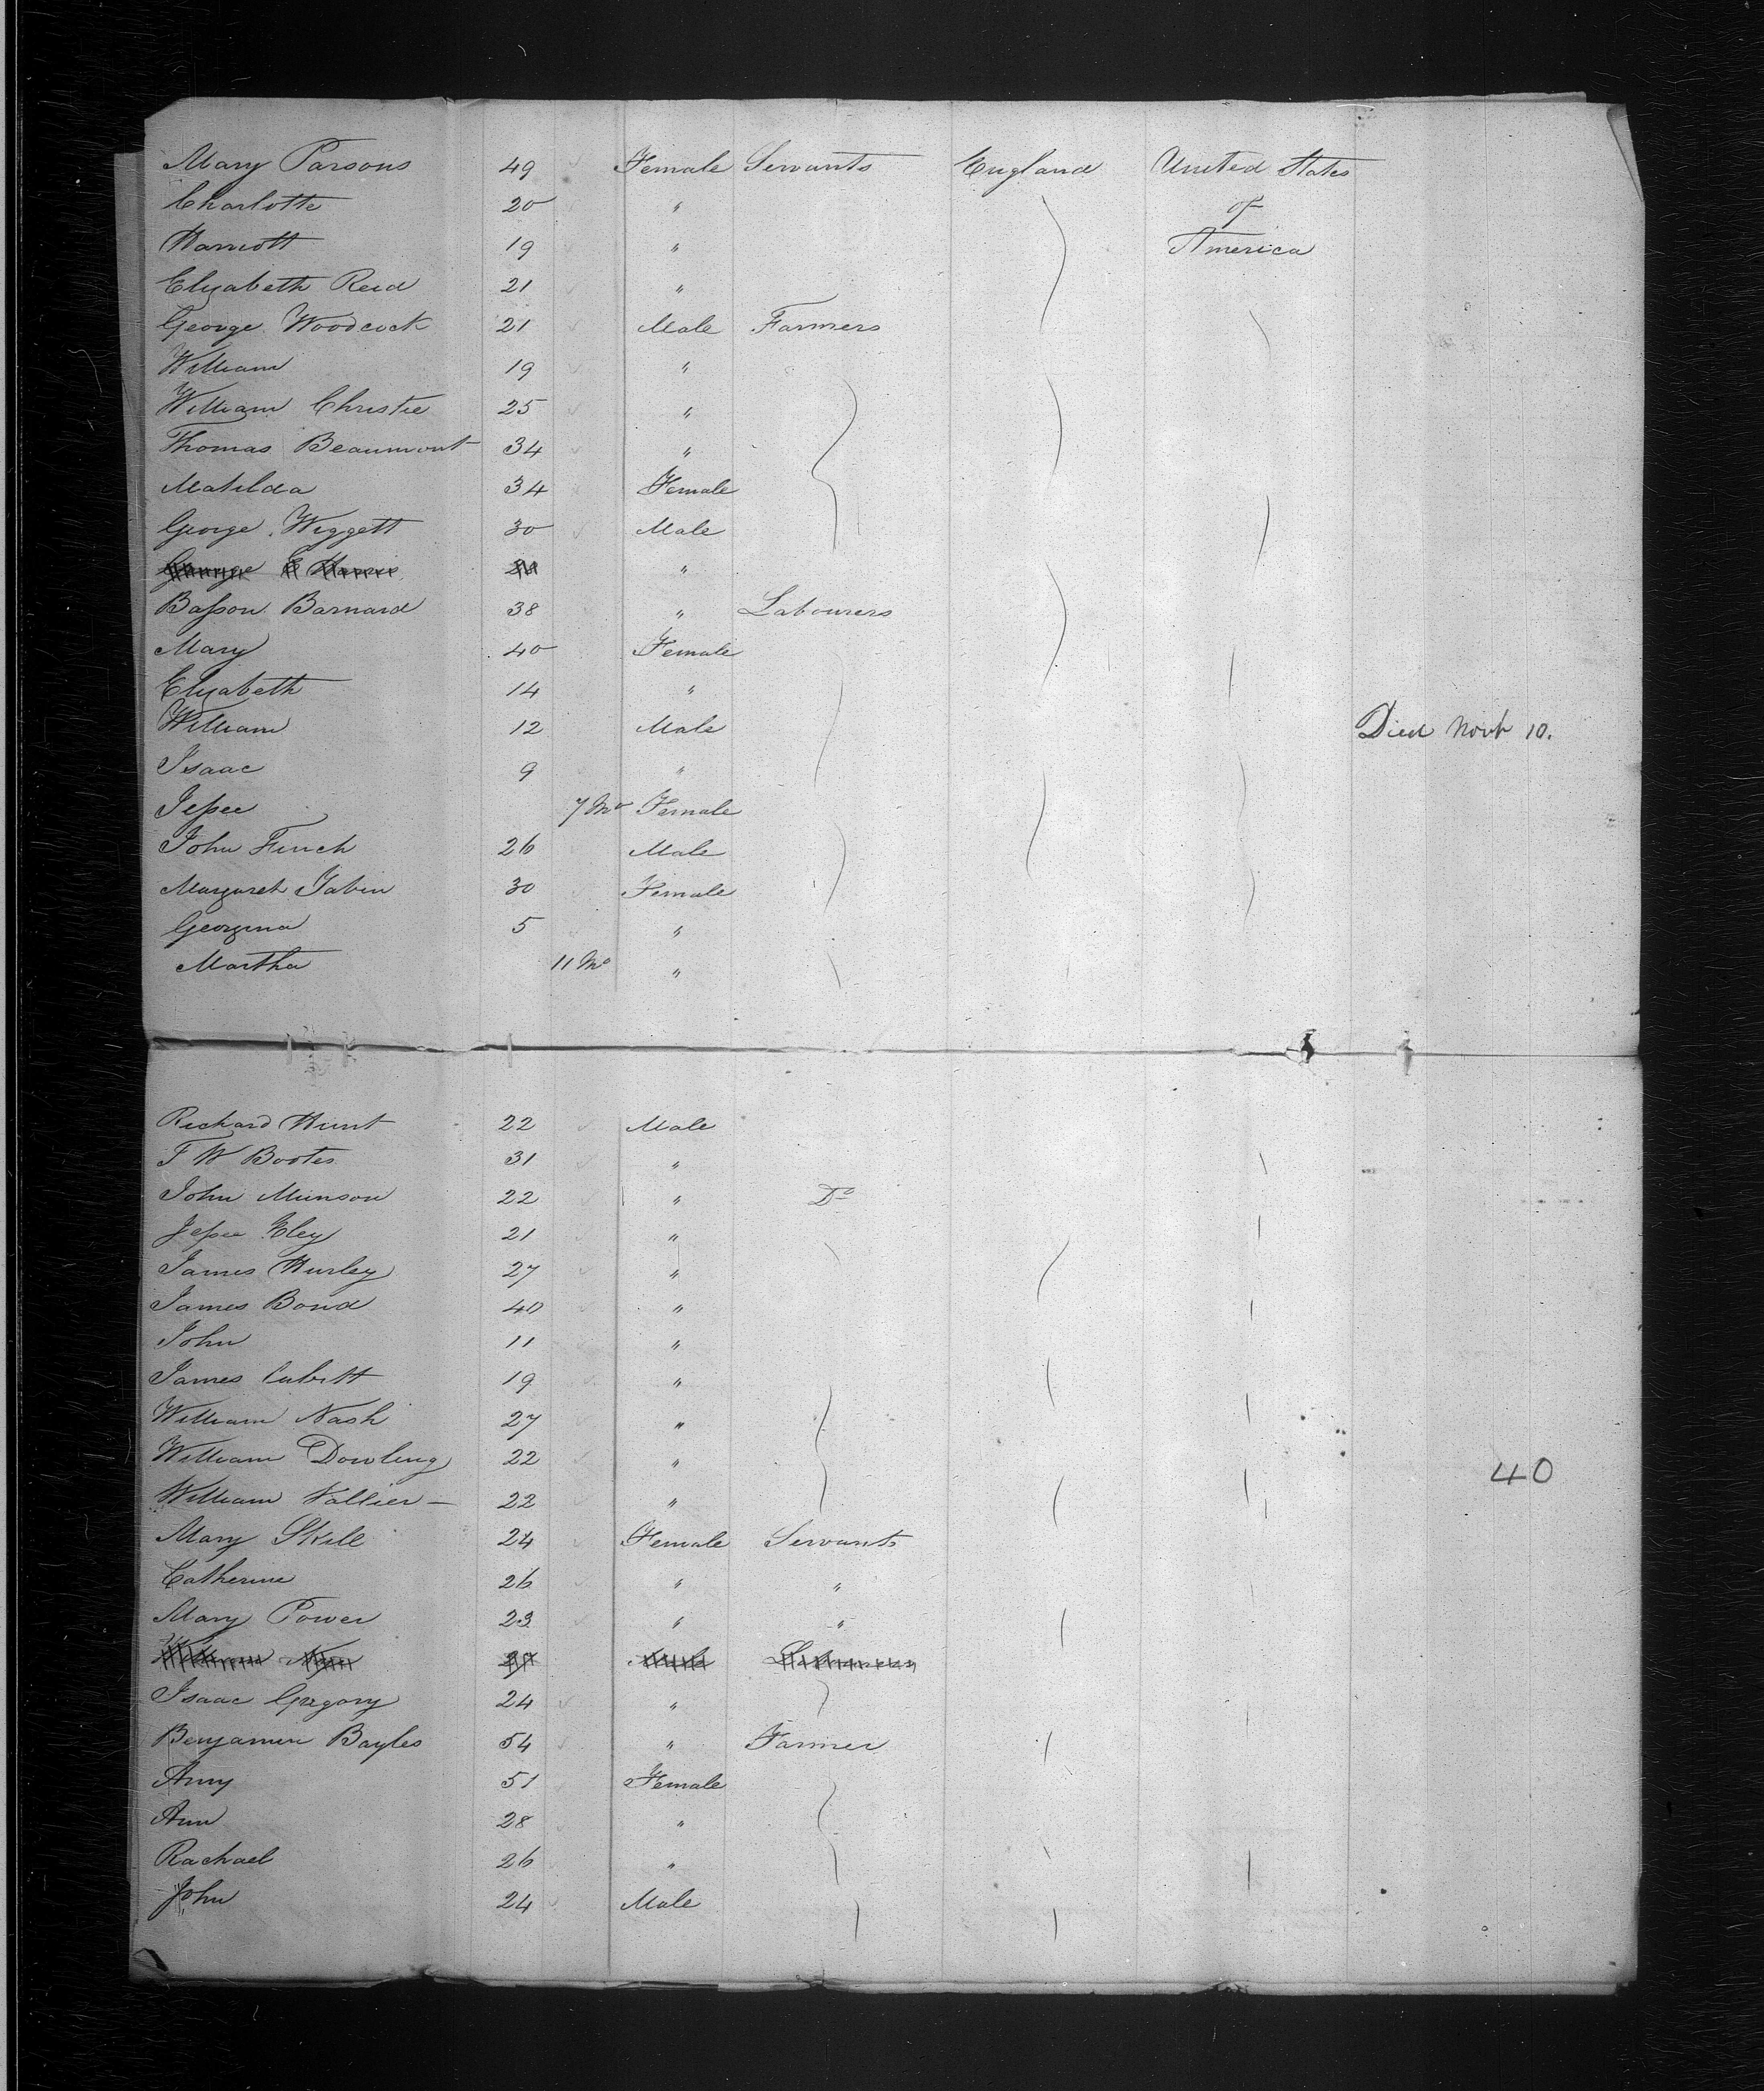 Mary Parsons 49 Female Servants England United States
Charlotte 20 " of
Harriott 19 " America
Elizabeth Reid 21 "
George Woodcock 21 Male Farmers
William 19 "
William Christie 25 "
Thomas Beaumont 34 "
Matilda 34 Female
George Wiggett 30 Male
George E Harris "
Basson Barnard 38 " Labourers
Mary 40 Female
Elizabeth 14 "
William 12 Male Died Novr 10.
Isaac 9 "
Jessee 7 Mo Female
John Finch 26 Male
Margaret Tabin 30 Female
Georgina 5 "
Martha 11 Mo "
Richard Hunt 22 Male
F W Bootes 31 "
John Munson 22 " Do
Jessee Eley 21 "
James Hurley 27 "
James Bond 40 "
John 11 "
James Cubitt 19 "
William Nash 27 "
William Dowling 22 " 40
William Vallier 22 "
Mary Skill 24 Female Servants
Catherine 26 " "
Mary Power 23 " "
William Male Labourers
Isaac Gregory 24 "
Benjamin Bayles 54 " Farmer
Amy 51 Female
Ann 28 "
Rachael 26 "
John 24 Male